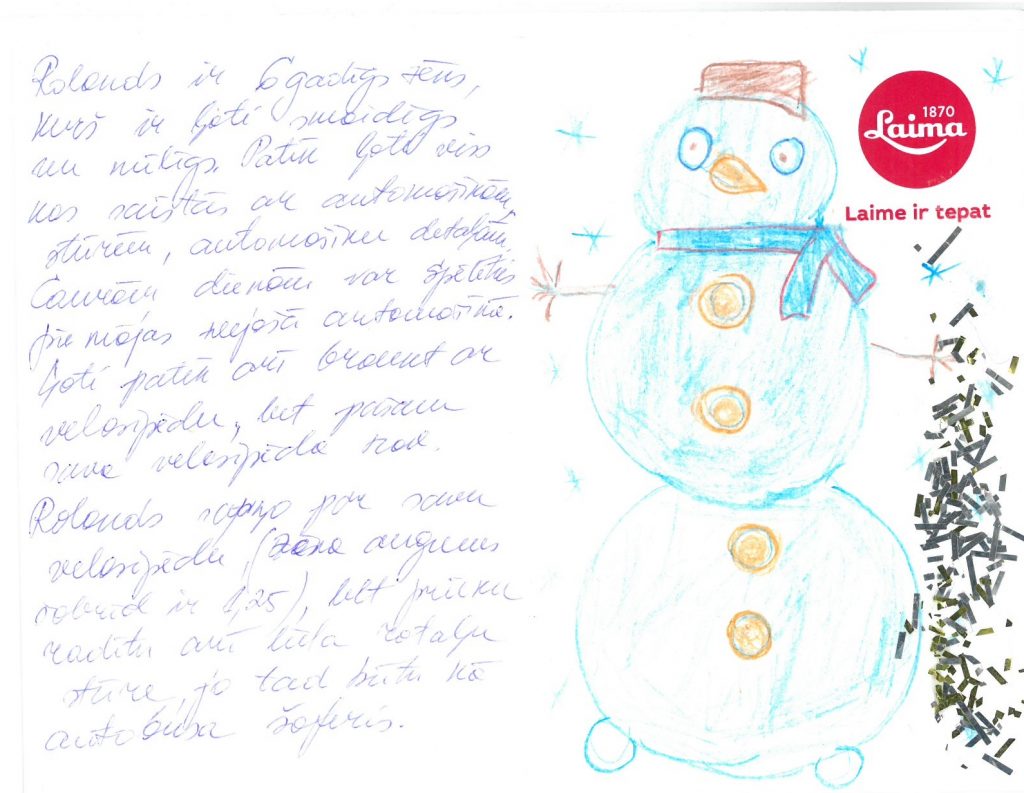 Rolands ir 6 gadīgs zēns,
kurš ir ļoti smaidīgs
un mīlīgs. Patīk ļoti viss
kas saistās ar automašīnām,
stūrēm, automašīnu detaļām.
Caurām dienām var spēlēties
pie mājas neejošā automašīnā.
Ļoti patīk arī braukt ar
velosipēdu, bet pašam
sava velosipēda nav.
Rolands sapņo par savu
velosipēdu, (zēna augums
šobrīd ir 1,25), bet prieku
radītu arī liela rotaļu
stūre, jo tad būtu kā
autobusa šoferis.
1870
Laima
Laime ir tepat